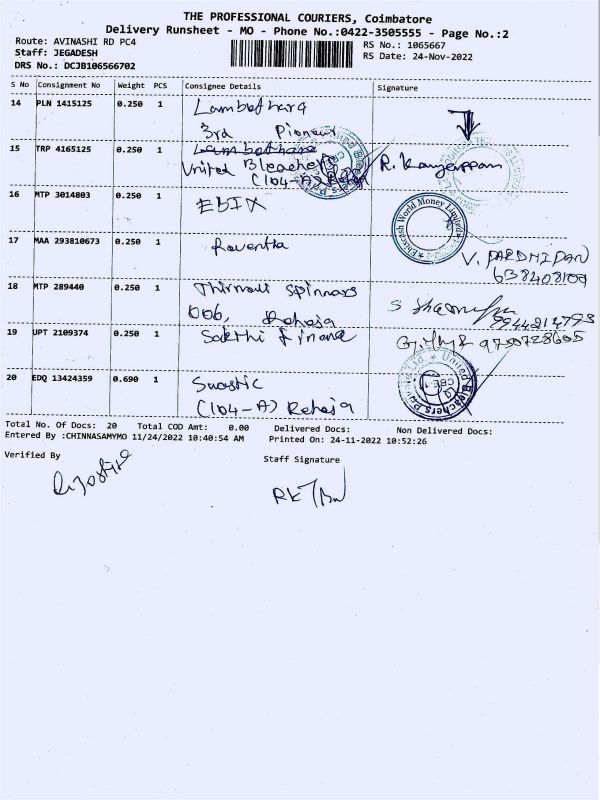 THE PROFESSIONAL COURIERS, Coimbatore
Delivery Runsheet - MO - Phone No.:0422-3505555 - Page No.:2
Route: AVINASHI RD PC4
RS No.: 1065667
Staff: JEGADESH
RS Date: 24-Nov-2022
DRS No.: DCJB106566702
S No Consignment No Weight PCS Consignee Details Signature
14 PLN 1415125 0.250 1 Lambothara
3rd Pioneur
15 TRP 4165125 0.250 1 Lambothara
United Bleachers
(104-A) Reheja
16 MTP 3014803 0.250 1 EBIX
Ebixcash World Money Limited
17 MAA 293810673 0.250 1
V. PARDHIPAN
638408109
18 MTP 289440 0.250 1 Thirmali Spinnars
006, Raheja
9944214793
19 UPT 2109374 0.250 1 Sakthi finance
9750728605
20 EDQ 13424359 0.690 1 Swastic
(104-A) Reheja
United Bleachers Private Ltd.
CBE-1
Total No. Of Docs: 20 Total COD Amt: 0.00 Delivered Docs: Non Delivered Docs:
Entered By :CHINNASAMYMO 11/24/2022 10:40:54 AM Printed On: 24-11-2022 10:52:26
Verified By
Staff Signature